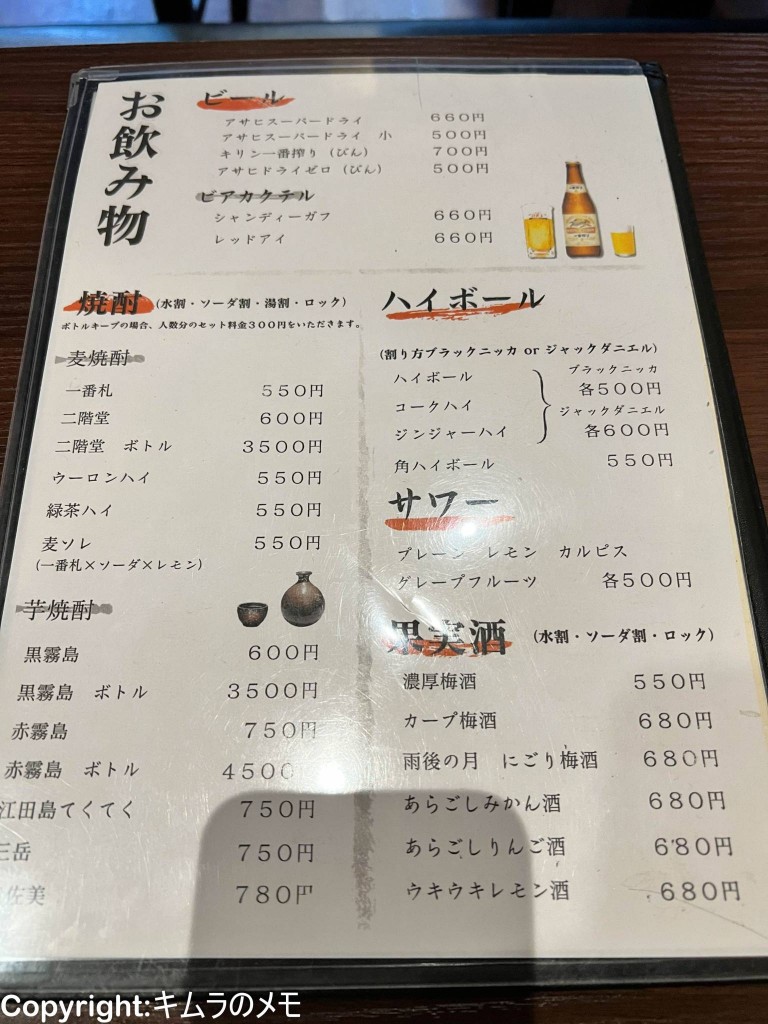 お飲み物
ビール
アサヒスーパードライ 660円
アサヒスーパードライ 小 500円
キリン一番搾り(びん) 700円
アサヒドライゼロ(びん) 500円
ビアカクテル
シャンディーガフ 660円
レッドアイ 660円
焼酎 (水割・ソーダ割・湯割・ロック)
ボトルキープの場合、人数分のセット料金300円をいただきます。
麦焼酎
一番札 550円
二階堂 600円
二階堂 ボトル 3500円
ウーロンハイ 550円
緑茶ハイ 550円
麦ソレ 550円
(一番札×ソーダ×レモン)
芋焼酎
黒霧島 600円
黒霧島 ボトル 3500円
赤霧島 750円
赤霧島 ボトル 4500
江田島てくてく 750円
三岳 750円
佐美 780円
ハイボール
(割り方ブラックニッカ or ジャックダニエル)
ハイボール
コークハイ
ジンジャーハイ
ブラックニッカ
各500円
ジャックダニエル
各600円
角ハイボール 550円
サワー
プレーン レモン カルピス
グレープフルーツ 各500円
果実酒 (水割・ソーダ割・ロック)
濃厚梅酒 550円
カープ梅酒 680円
雨後の月 にごり梅酒 680円
あらごしみかん酒 680円
あらごしりんご酒 680円
ウキウキレモン酒 680円
Copyright:キムラのメモ